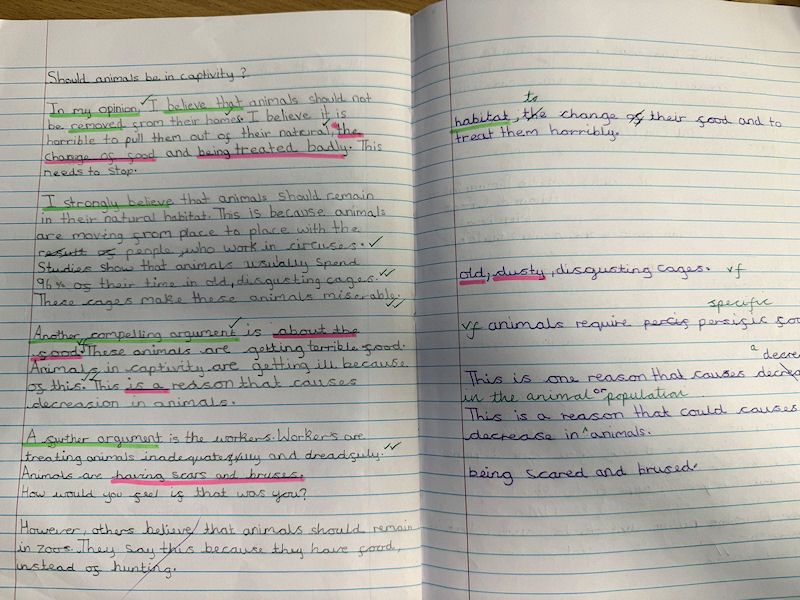 Should animals be in captivity?
In my opinion, I believe that animals should not
be removed from their homes. I believe it is
horrible to pull them out of their natural, the
change of food and being treated badly. This
needs to stop.
I strongly believe that animals should remain
in their natural habitat. This is because animals
are moving from place to place with the
result of people who work in circuses.
Studies show that animals usually spend
96% of their time in old, disgusting cages.
These cages make these animals miserable.
Another compelling argument is about the
food. These animals are getting terrible food.
Animals in captivity are getting ill because
of this. This is a reason that causes
decreasion in animals.
A further argument is the workers. Workers are
treating animals inadequatefully and dreadfuly.
Animals are having scars and bruses.
How would you feel if that was you?
However, others believe that animals should remain
in zoos. They say this because they have food,
instead of hunting.
to
habitat, the change of their food and to
treat them horribly.
old, dusty, disgusting cages. vf
specific
vf animals require percis persific
a decre
This is one reason that causes
in the animal population
or
This is a reason that could causes
decrease in animals.
being scared and brused